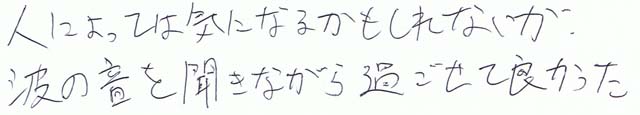 人によっては気になるかもしれないが、
波の音を聞きながら過ごせて良かった